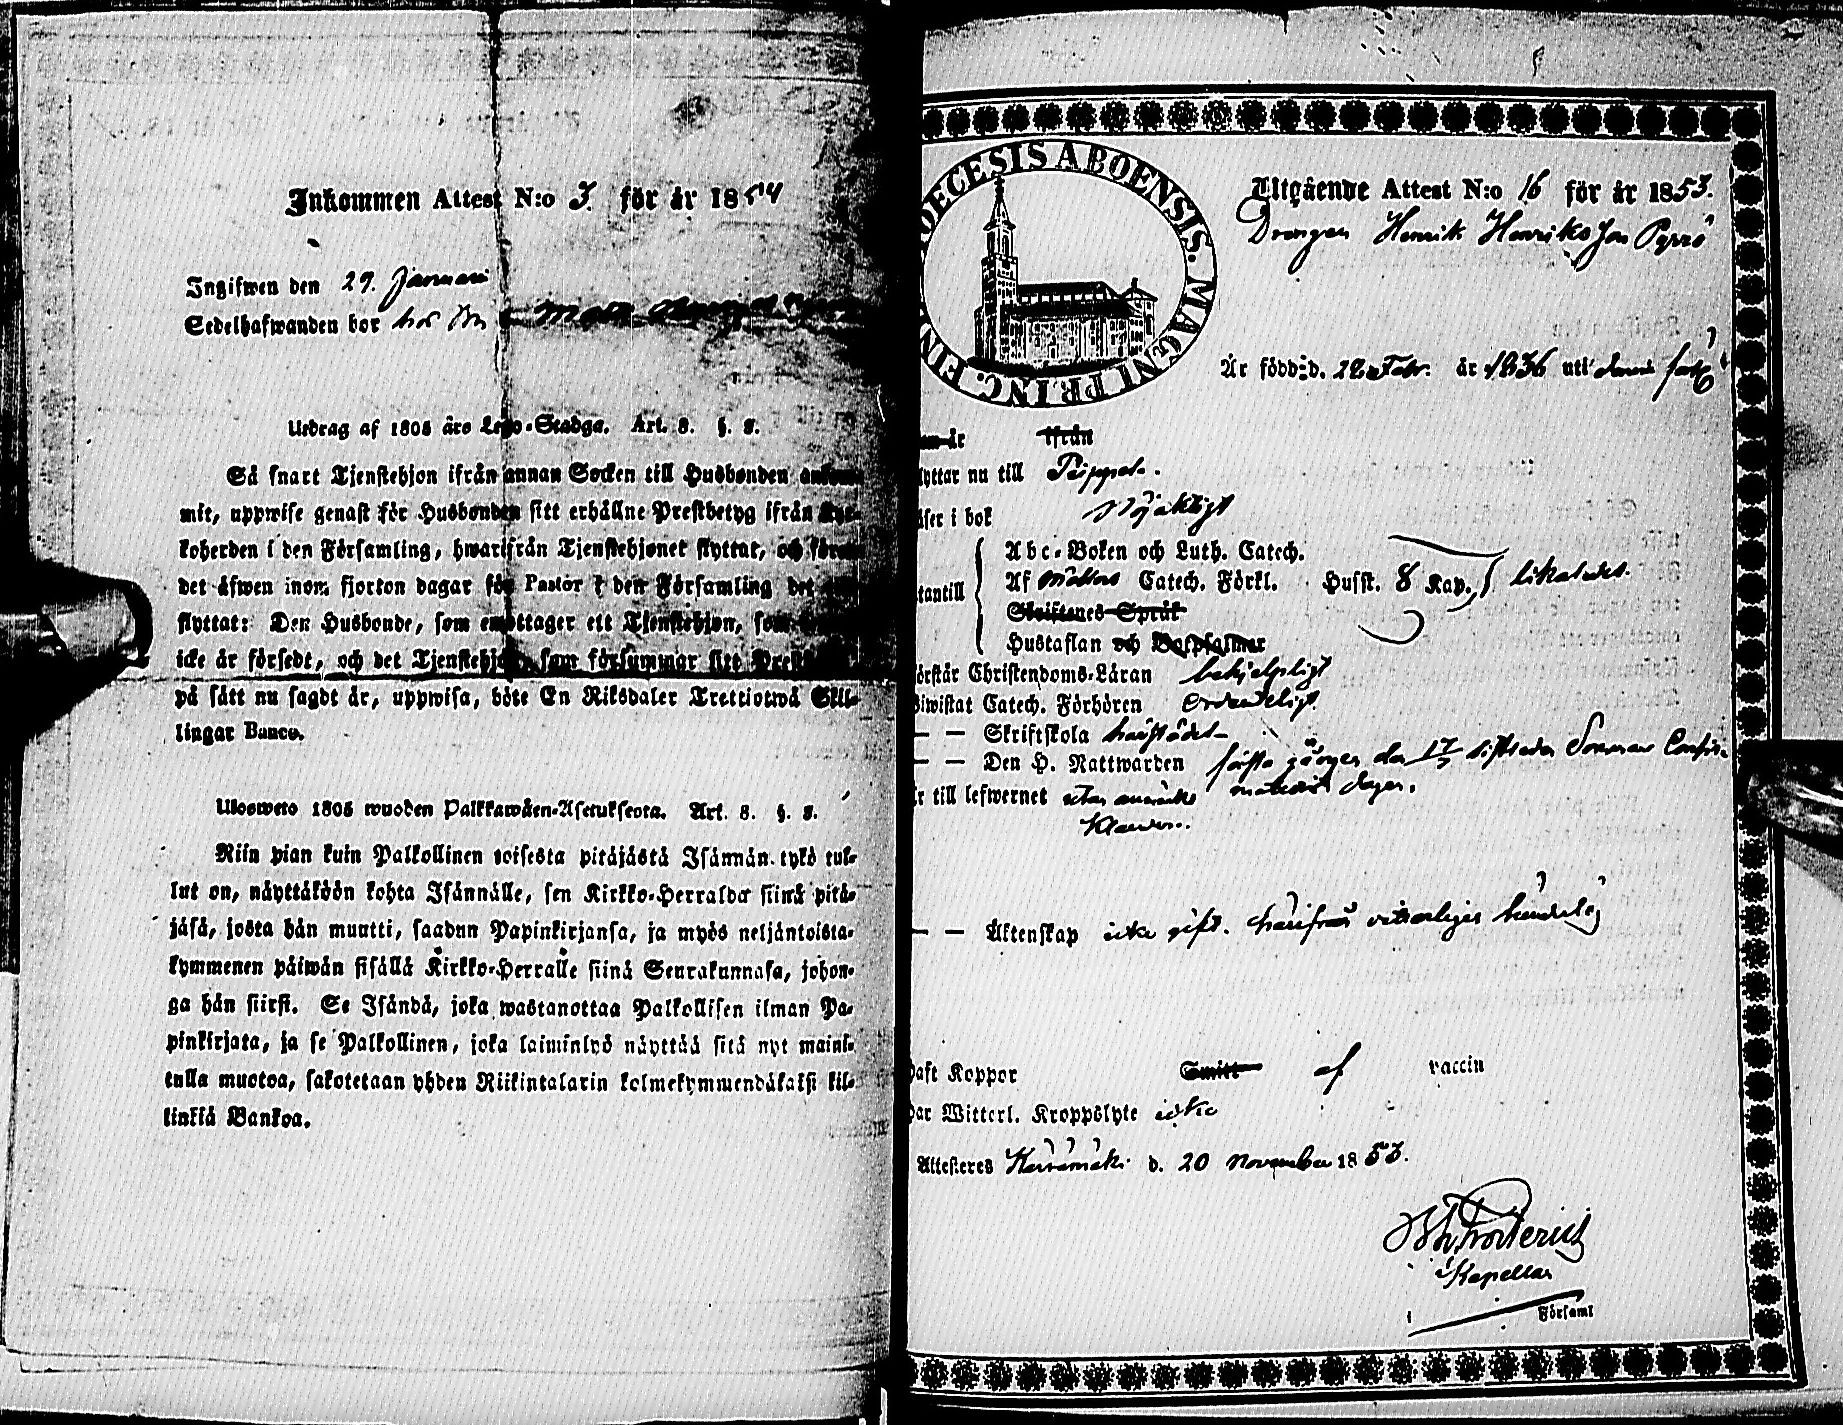 Inkommen Attest N:o 3. för år 1854
Ingifwen den 29. Januari
Sedelhafwanden bor hos
Utdrag af 1805 års Lego-Stadga. Art. 8. §. 8.
Så snart Tjenstehjon ifrån annan Socken till Husbonden ankom-
mit, uppwise genast för Husbonden sitt erhållne Prestbetyg ifrån Kyr-
koherden i den Församling, hwarifrån Tjenstehjonet flyttat, och
det äfwen inom fjorton dagar för Pastor i den Församling det
flyttat: Den Husbonde, som emottager ett Tjenstehjon, som
icke är försedt, och det Tjenstehjon, som försummar sitt
på sätt nu sagdt är, uppwisa, böte En Riksdaler Trettiotwå Skil-
lingar Banco.
Ulosweto 1805 wuoden Palkkawäen-Asetuksesta. Art. 8. §. 8.
Niin pian kuin Palkollinen toisesta pitäjästä Isännän tykö tul-
lut on, näyttäköön kohta Isännälle, sen Kirkko-Herralda siinä pitä-
jäsä, josta hän muutti, saadun Papinkirjansa, ja myös neljäntoista-
kymmenen päiwän sisällä Kirkko-Herralle siinä Seurakunnasa, johon-
ga hän siirsi. Se Isändä, joka wastanottaa Palkollisen ilman Pa-
pinkirjata, ja se Palkollinen, joka laiminlyö näyttää sitä nyt maini-
tulla muotoa, sakotetaan yhden Riikintalarin kolmekymmendäkaksi kil-
linkiä Bankoa.
DIOECESIS ABOENSIS. MAGNI PRINC. FIN
Utgående Attest N:o 16 för år 1853.
Drengen Henrik Henriksson Pyrrö
Är född: d. 22 Febr. år 1836 uti denna
är ifrån
flyttar nu till Pippola.
äser i bok Nöjaktigt
Abc-Boken och Luth. Catech.
Af Möllers Catech. Förkl. Husst. 8 Kap. likaledes.
tantill
Skriftenes Språk
Hustaflan och Botpsalmer
örstår Christendoms-Läran behjelpligt
Biwistat Catech. Förhören ordentligt
— — Skriftskola härstädes
— — Den H. Nattwarden första gången den 17 sistledne Sommar Confir-
mations dagen.
r till lefwernet utan anmärkt
klander.
— — Äktenskap icke gift. härifrån vitterligen hinderlös
Haft Koppor Smitt af vaccin
Har Witterl. Kroppslyte icke
Attesteres Kärsämäki d. 20 November 1853.
Kapellan
Församl